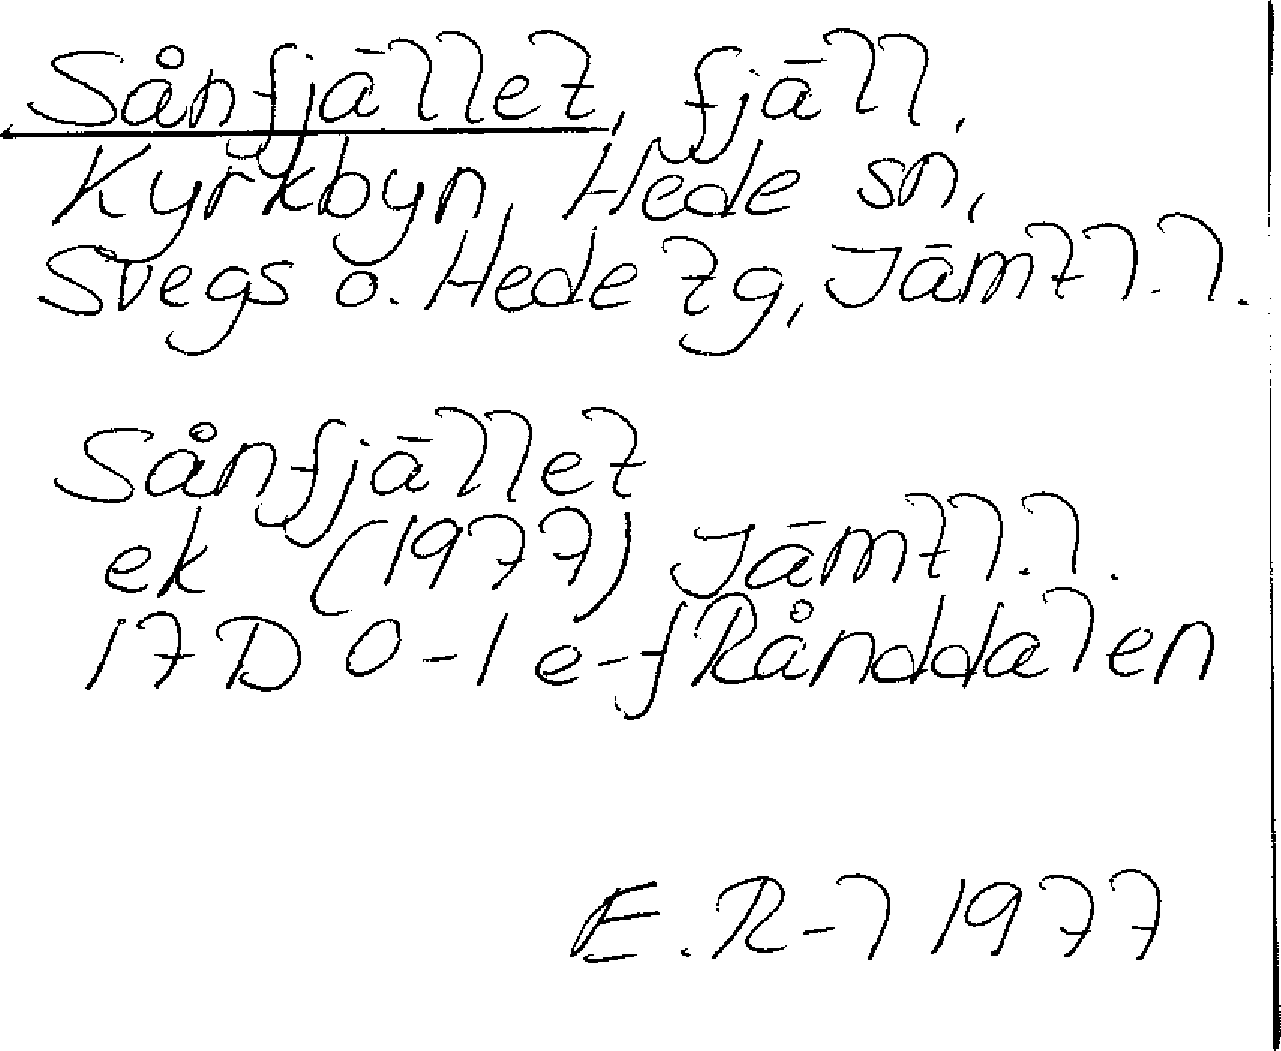 Sånfjället, fjäll,
Kyrkbyn, Hede sn,
Svegs o. Hede tg, Jämtl. l.
Sånfjället
ek (1977) Jämtl. l.
17D 0-1 e-f Rånddalen
E. R-l 1977